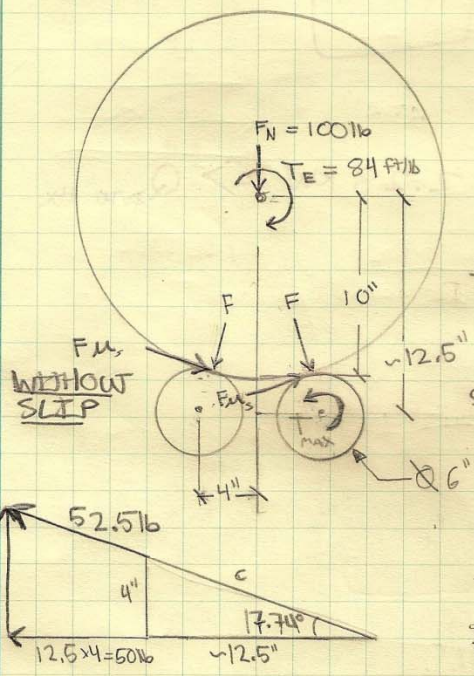 F_N = 100 lb
T_E = 84 ft/lb
F
F
10"
~12.5"
Fμs
WITHOUT
SLIP
Fμs
T MAX
4"
Ø 6"
52.5 lb
4"
c
17.74°
12.5 x 4 = 50 lb
~12.5"